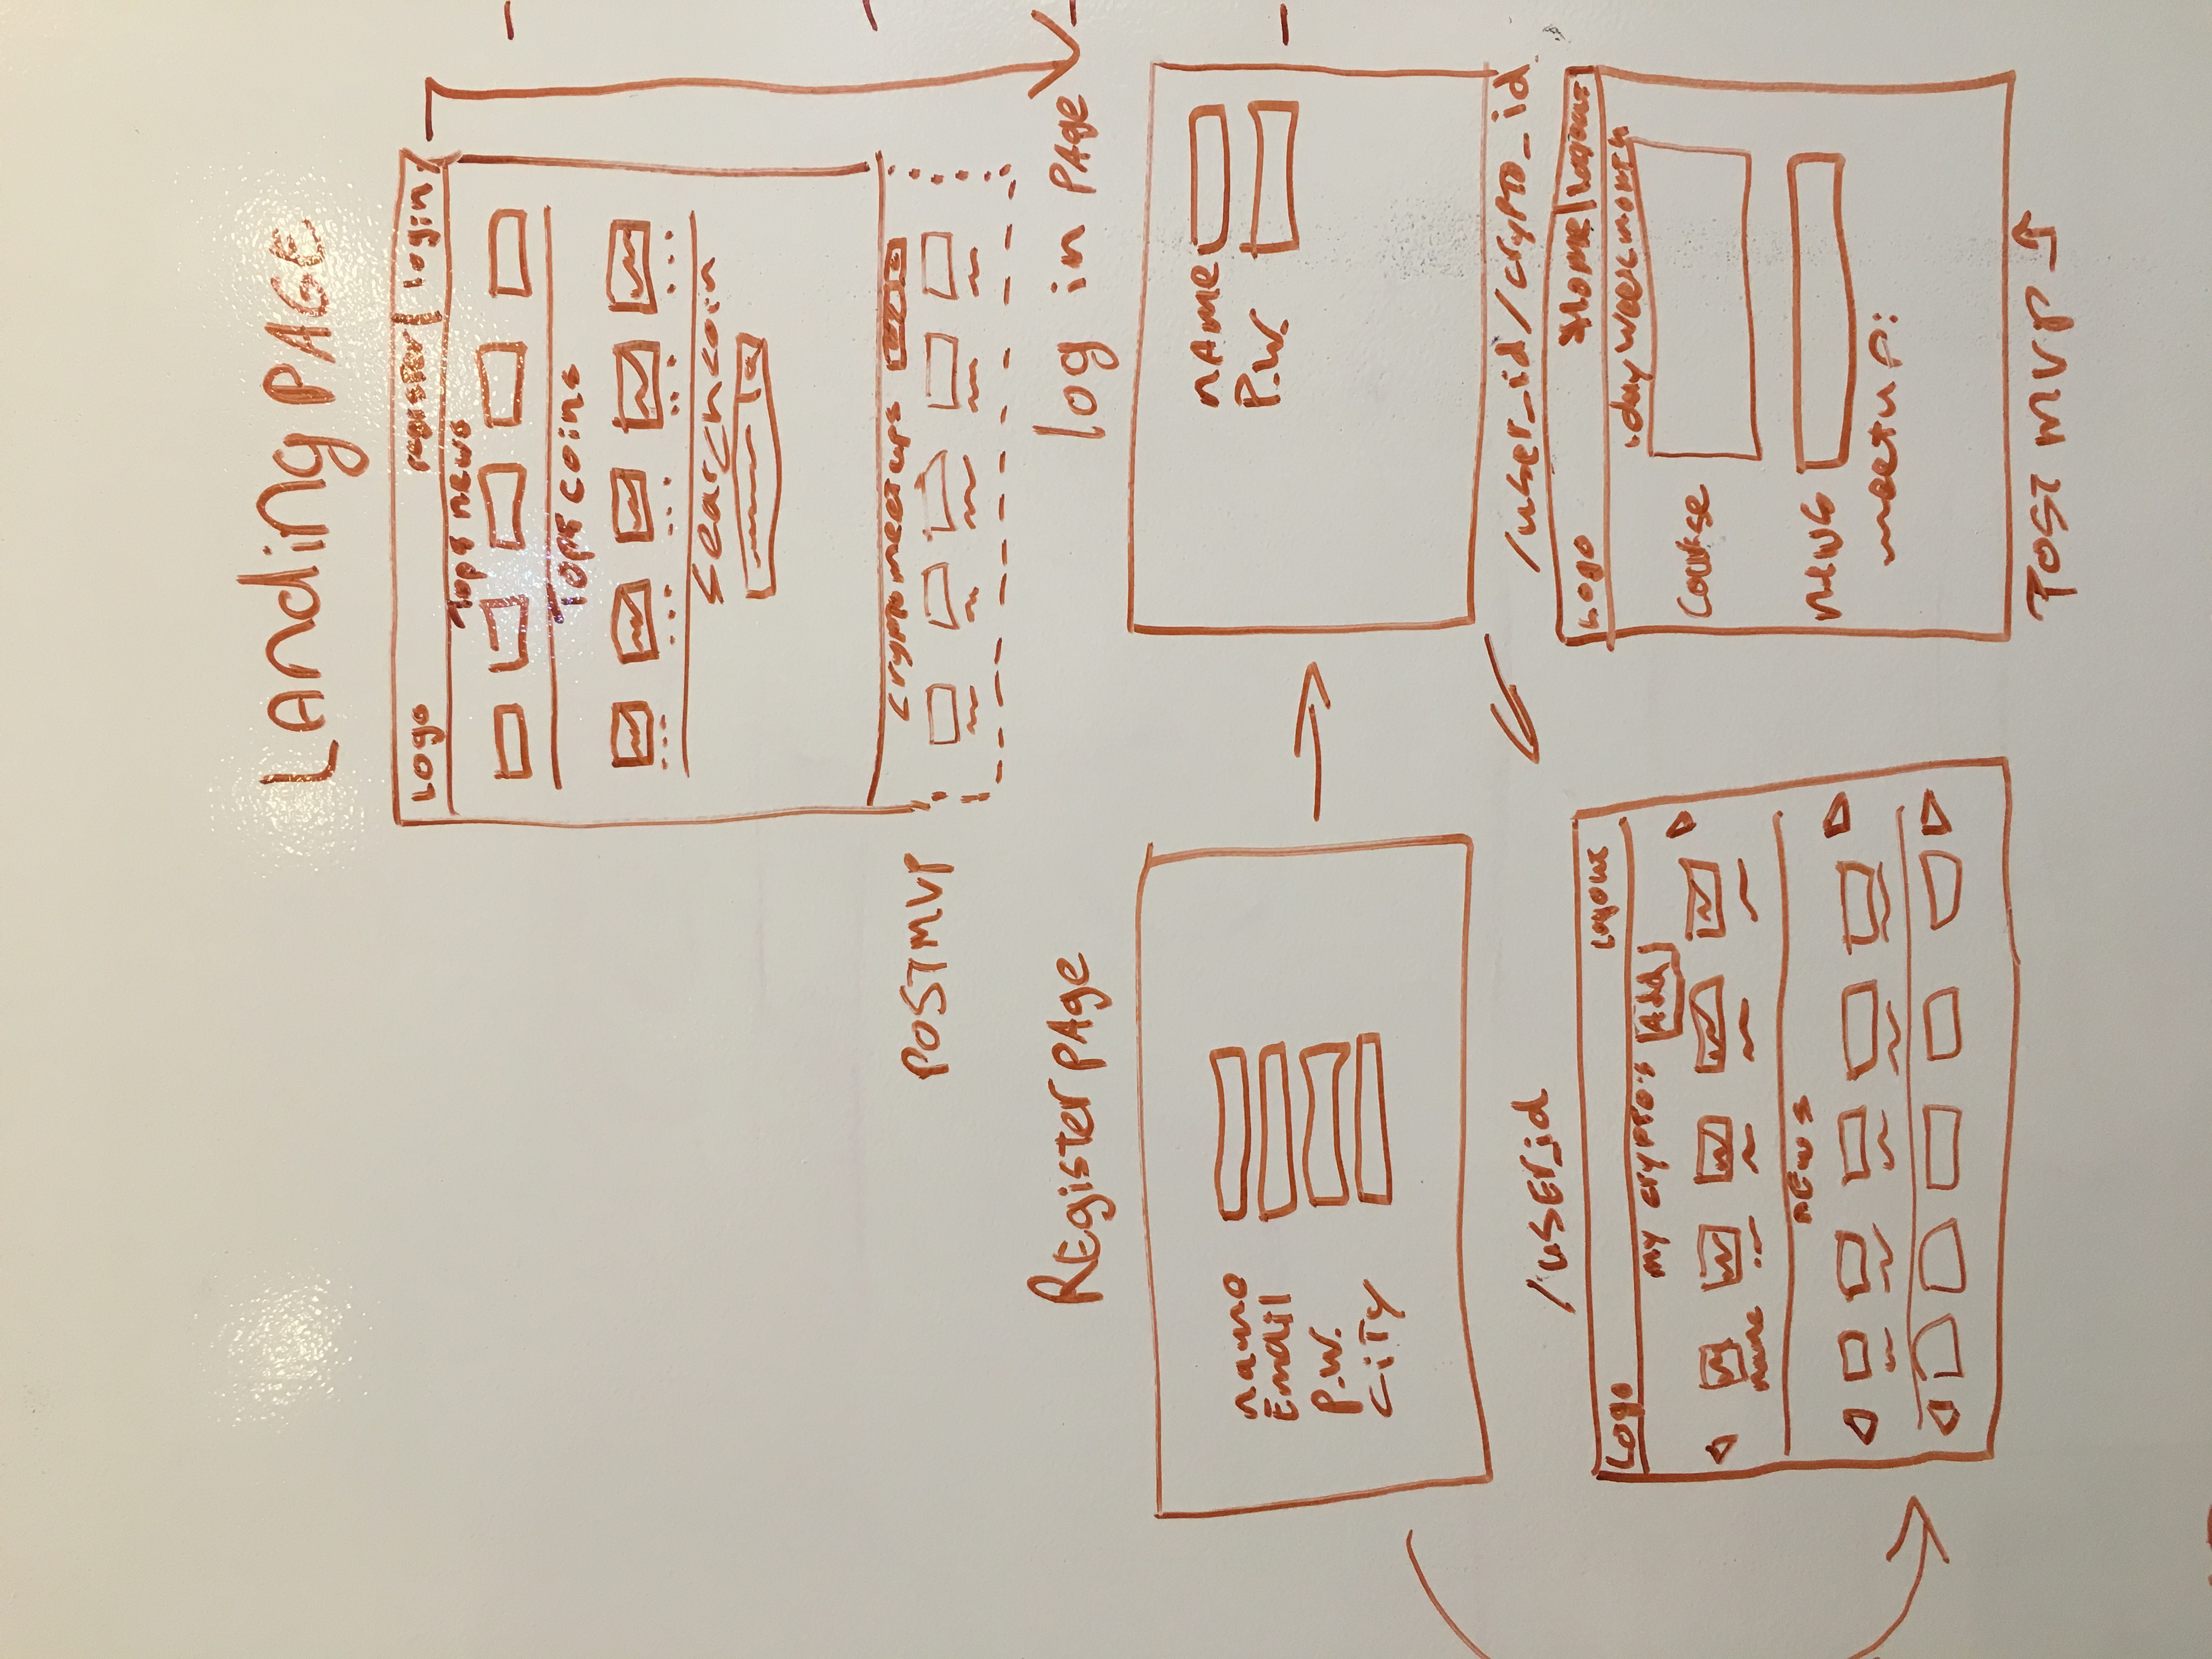 LAnding PAGE
Logo register | login
Top 5 news
Top 5 coins
Search coin
POST MVP
Crypto meet ups
REgister pAge
name
Email
P.W.
CiTy
log in PAge
nAme
P.W.
/usEr_id
Logo Logout
my crypto's Add
name
nEws
/user_id/crypto_id
Logo Home | Logout
day week month
Course
news
meetup:
POST MVP